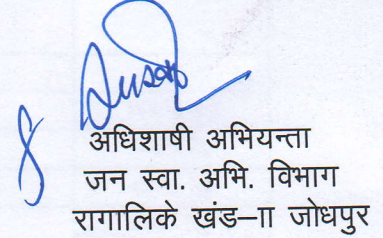 अधिशाषी अभियन्ता
जन स्वा. अभि. विभाग
रागालिके खंड–।। जोधपुर